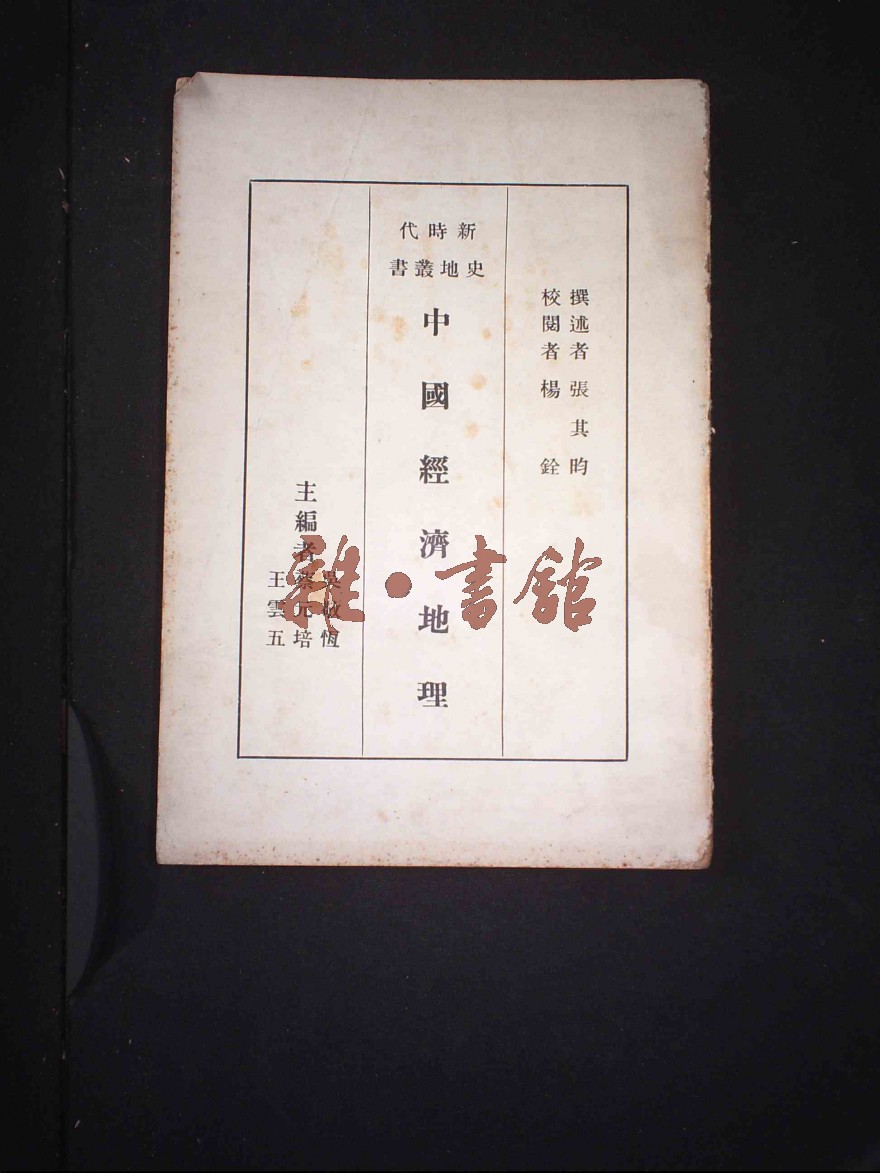 撰述者 張其昀
校閱者 楊銓
新時代
史地叢書
中國經濟地理
主編者
吳敬恆
蔡元培
王雲五
雜·書館